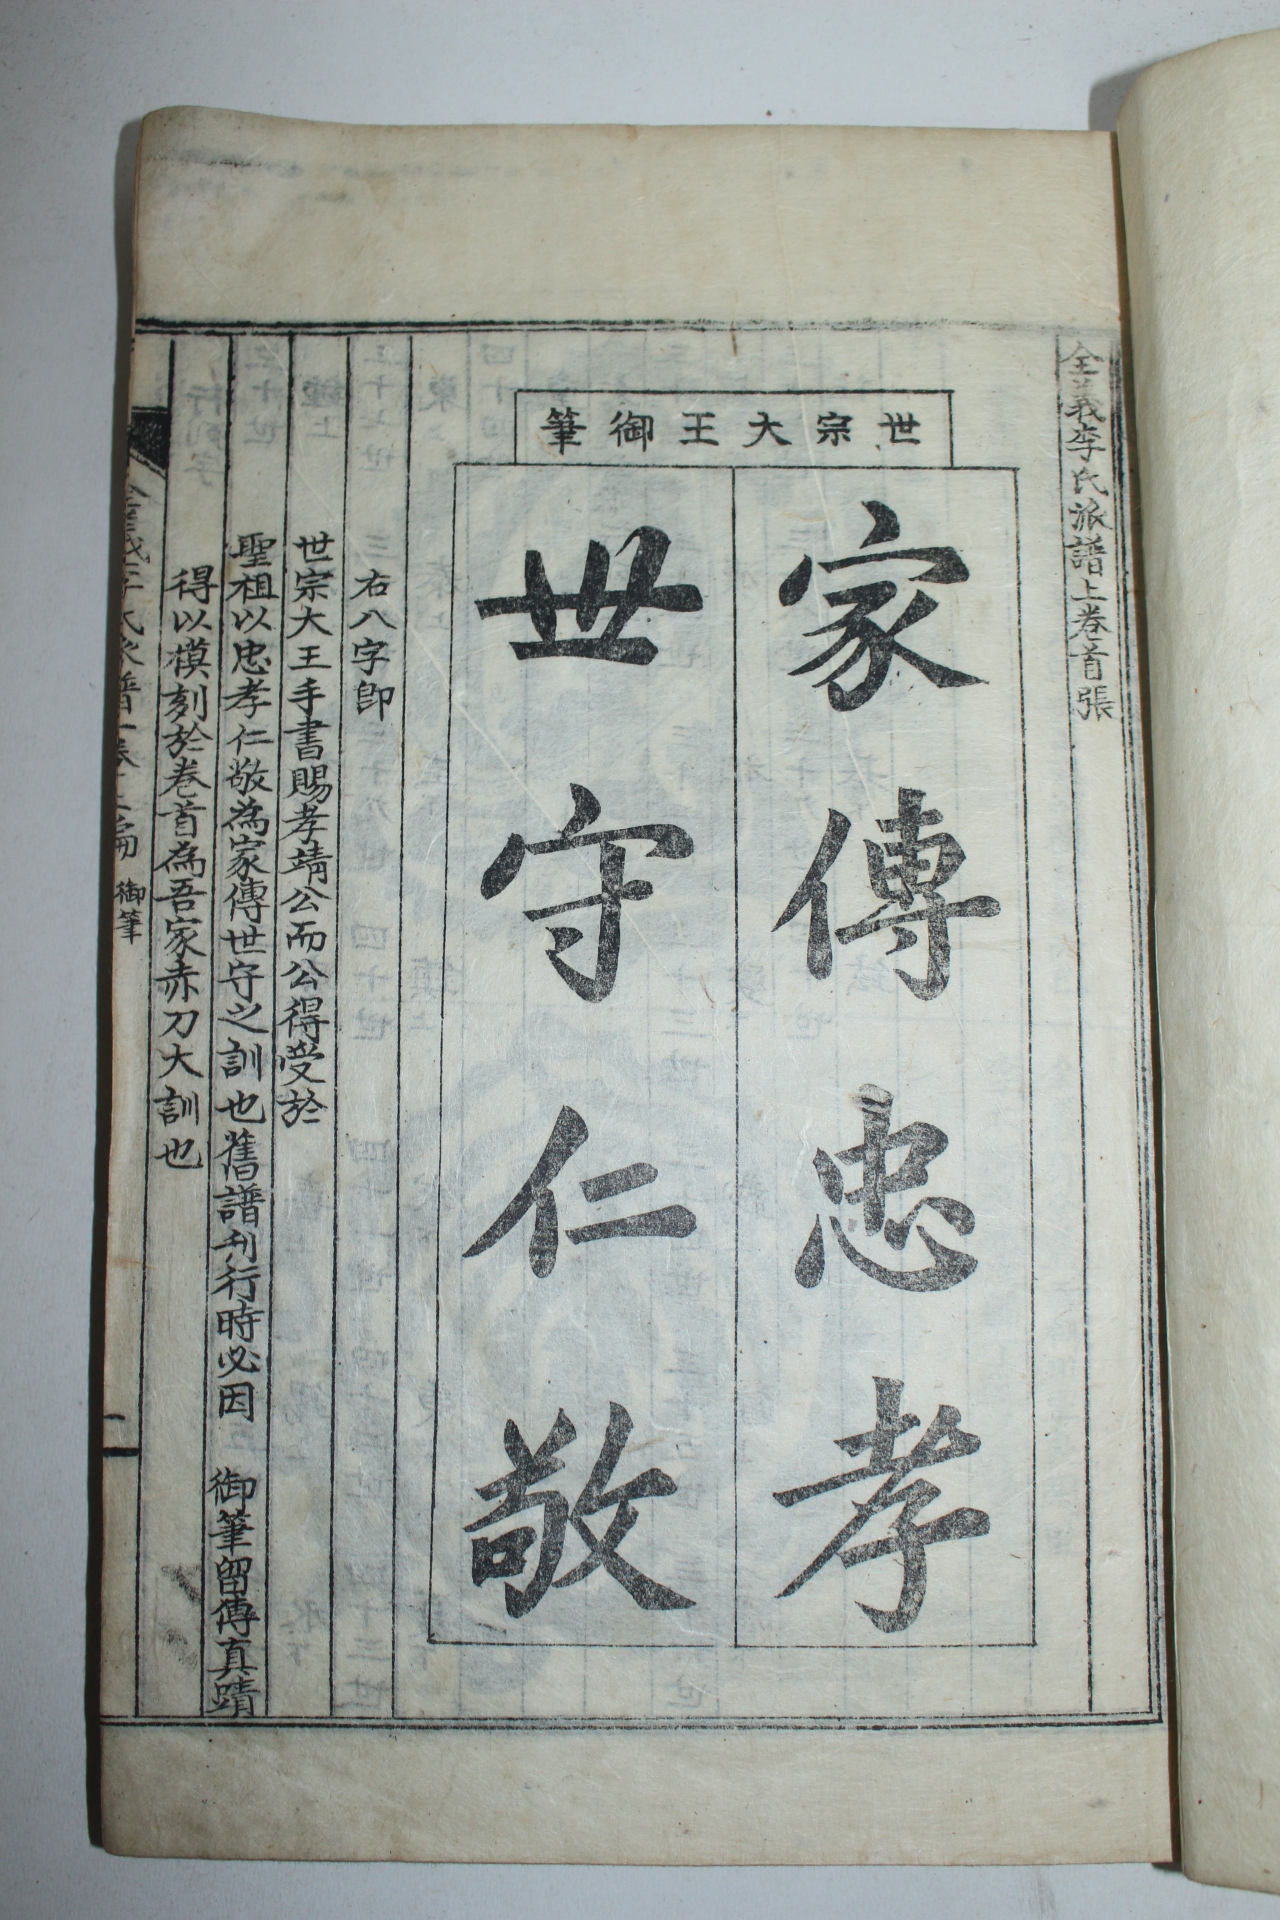 全義李氏派譜上卷首張
世宗大王御筆
家傳忠孝
世守仁敬
右八字卽
世宗大王手書賜孝靖公而公得受於
聖祖以忠孝仁敬為家傳世守之訓也舊譜刊行時必因 御筆留傳真蹟
得以模刻於卷首為吾家赤刀大訓也
御筆